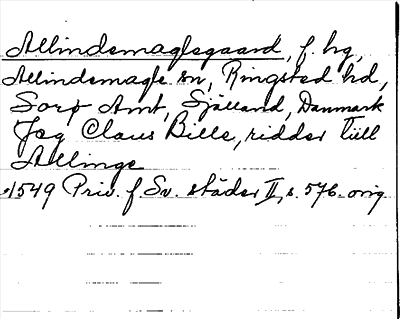 Allindemaglegaard, f. hg,
Allindemagle sn, Ringsted hd,
Sorø Amt, Sjælland, Danmark
Jeg Claus Bille, ridder tüll
Allinge
1549 Priv. f. Sv. städer II, s. 576. orig